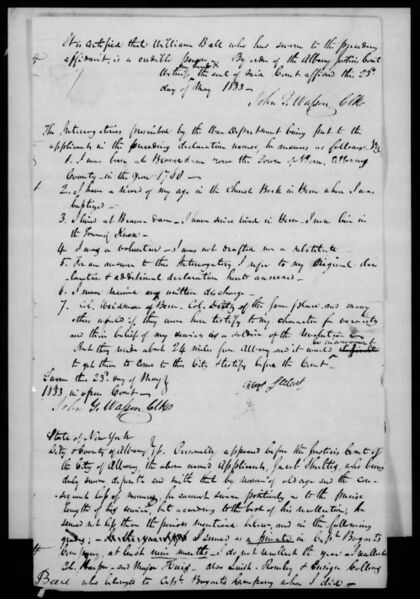 It is certified that William Ball who has sworn to the preceding
affidavit, is a credible person By order of the Albany Justices Court
Witness the seal of said Court affixed this 23d.
day of May 1833 —
John G. Wasson Clk
The Interrogatories prescribed by the War Department being put to the
applicant in the preceding declaration named, he answers as follows. Viz
1. I was born at Beaverdam now the Town of Bern, Albany
County — in the year 1760 —
2. I have a record of my age in the Church Book in Bern where I was
baptised —
3. I lived at Beaverdam — I have since lived in Bern — I now live in
the Town of Knox —
4. I was a volunteer — I was not drafted nor a substitute —
5. For an answer to this Interrogatory I refer to my original dec-
laration & additional declaration hereto annexed —
6. I never received any written discharge —
7. Col. Weidman of Bern — Col. of the same place and many
others would if they were here testify to my character for veracity
and their belief of my services as a soldier of the Revolution —
But they reside about 24 miles from Albany and it would be inconvenient
to get them to come to the City & testify before the Court —
Sworn the 23d. day of May
1833 in open Court —
John G. Wasson Clk
State of New York
City & County of Albany Personally appeared before the Justices Court of
the City of Albany the above named Applicant, Jacob who being
duly sworn deposeth and saith that by reason of old age and the con-
sequent loss of memory, he cannot swear positively as to the precise
length of his service, but according to the best of his recollection, he
served not less than the periods mentioned below, and in the following
grades; — I served as a private in Capt. Bogarts
Company, at least nine months — I do not recollect the year — I recollect
Harper — and Major also Lieut. & Ensign
Ball who belonged to Capt. Bogarts Company when I did —